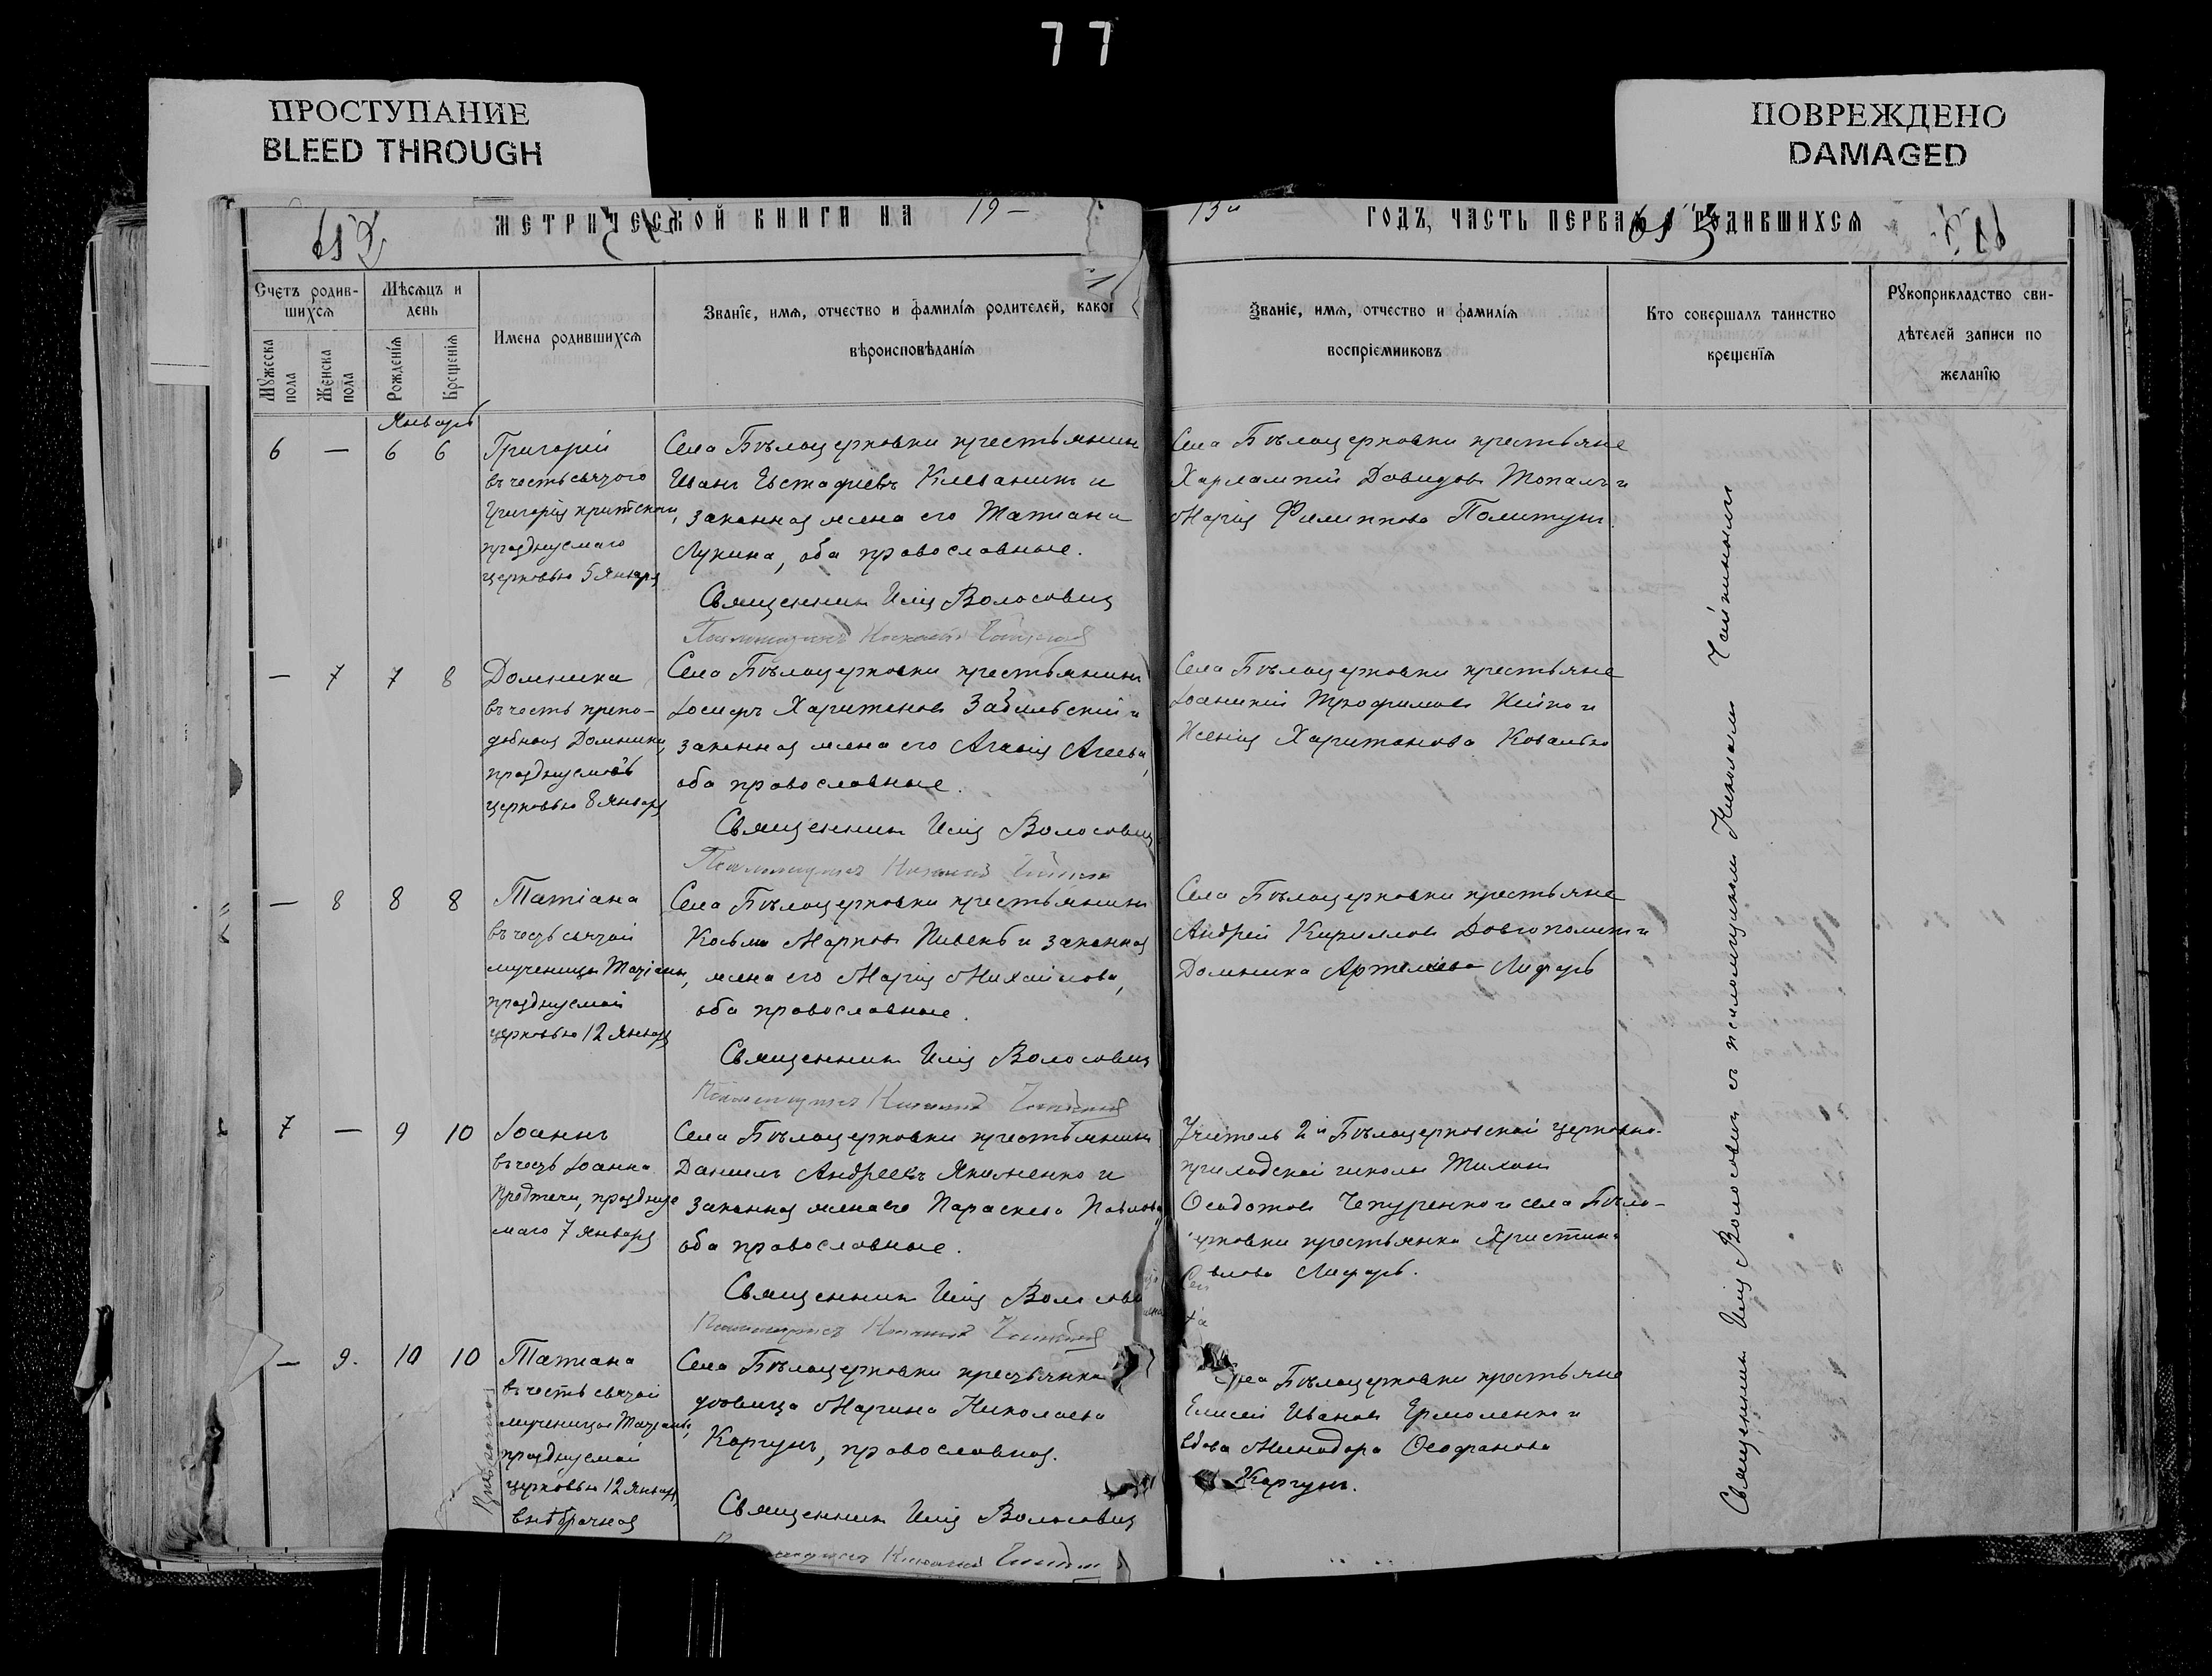 77
ПРОСТУПАНИЕ
BLEED THROUGH
ПОВРЕЖДЕНО
DAMAGED
МЕТРИЧЕСКОЙ КНИГИ НА 19 —
13й ГОДЪ, ЧАСТЬ ПЕРВАЯ РОДИВШИХСЯ
Счетъ родив-
шихся
Мужеска пола
Женска пола
Мѣсяцъ и
день
Рожденія
Крещенія
Имена родившихся
Званіе, имя, отчество и фамилія родителей, каког
вѣроисповѣданія
Званіе, имя, отчество и фамилія
воспріемниковъ
Кто совершалъ таинство
крещенія
Рукоприкладство сви-
дѣтелей записи по
желанію
Январь
6 — 6 6
Григорій
въ честь святого
Григорія критскаго,
празднуемаго
церковью 5 Января
Села Бѣлоцерковки крестьянинъ
Иванъ Евстафіевъ Клеваникъ и
законная жена его Татіана
Лукина, оба православные.
Священникъ Илія Волосовичъ
Псаломщикъ Николай
Села Бѣлоцерковки крестьяне
Харлампій Давидовъ Топалъ и
Марія Филиппова Политунъ.
— 7 7 8
Домника
въ честь препо-
добная Домники,
празднуемоъ
церковью 8 Января
Села Бѣлоцерковки крестьянинъ
Іосифъ Харитоновъ Забильскій и
законная жена его Агаѳія Агеева,
оба православные.
Священникъ Илія Волосовичъ
Псаломщикъ Николай
Села Бѣлоцерковки крестьяне
Іоаникій Трофимовъ и
Ксенія Харитонова Ковалько
— 8 8 8
Татіана
въ честь святой
мученицы Татіаны,
празднуемой
церковью 12 Января
Села Бѣлоцерковки крестьянинъ
Косьма Марковъ Пивень и законная
жена его Марія Михайлова,
оба православные.
Священникъ Илія Волосовичъ
Псаломщикъ Николай
Села Бѣлоцерковки крестьяне
Андрей Кирилловъ Довгополикъ и
Домника Артемьева Лифарь
7 — 9 10
Іоаннъ
въ честь Іоанна
Предтечи, праздну-
маго 7 Января
Села Бѣлоцерковки крестьянинъ
Даніилъ Андреевъ Якименко и
законная жена его Параскева Павлова,
оба православные.
Священникъ Илія Волосови
Псаломщикъ Николай
Учитель 2й Бѣлоцерковской церковно-
приходской школы Тихонъ
Ѳеодотовъ Чепуренко и села Бѣло-
ерковки крестьянка Христина
влова Лифарь.
— 9. 10 10
Татіана
въ честь святой
мученицы Татіаны,
празднуемой
церковью 12 Января,
внѣбрачная
Села Бѣлоцерковки крестьянка
вдовица Марина Николаева
Коргунъ, православная.
Священникъ Илія Волосовичъ
Николай
Села Бѣлоцерковки крестьяне
Елисей Ивановъ Ермоленко и
вдова Минодора Ѳеофанова
Коргунъ.
Священникъ Илія Волосовичъ съ псаломщикомъ Николаемъ